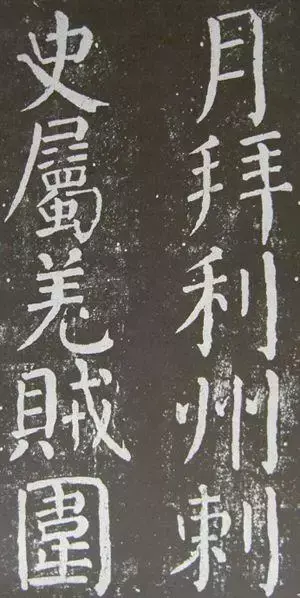 月拜利州刺
史屬羌賊圍